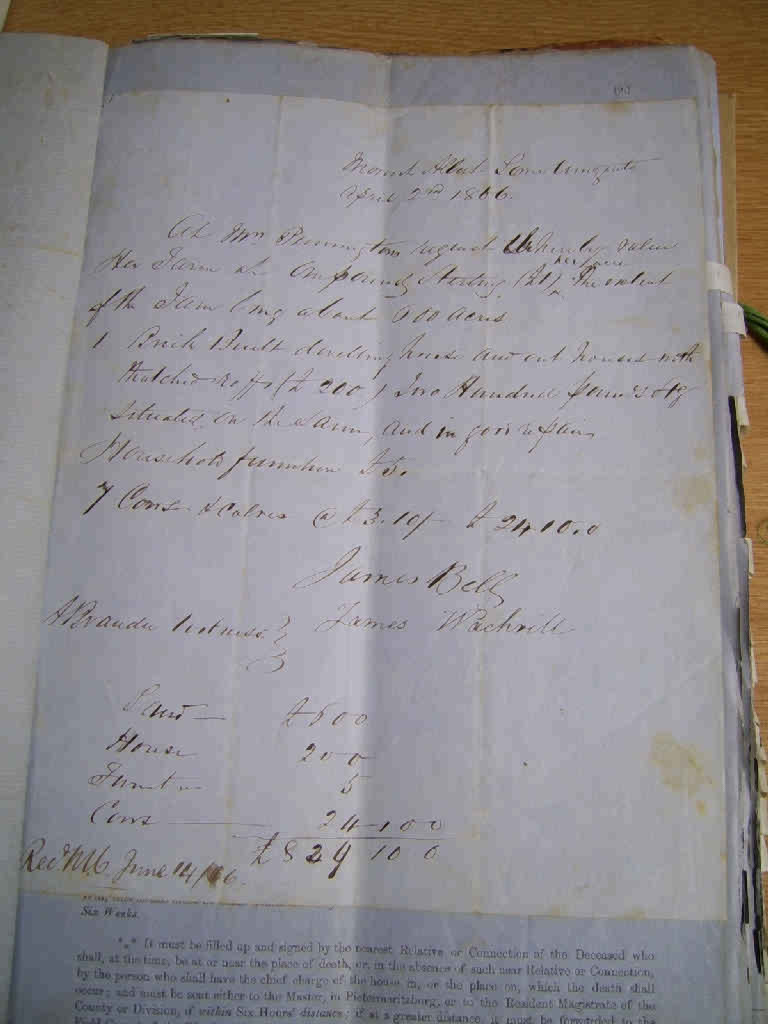 April 2nd 1866.
At Mrs Pennington's request We hereby value
Her Farm at One pound Sterling (£1) per acre The extent
of the Farm being about 600 acres
1 Brick Built dwelling house and out houses with
thatched roofs (£200) Two Hundred pounds Stg
Situated on the Farm, and in good repair
Household furniture £5.
7 Cows & Calves @ £3.10/- £24.10.0
James Bell
Witness } James
Land — £600
House 200
Furnit 5
Cows — 24 10 0
£829 10 0
Recd June 14/66.
Six Weeks.
*** It must be filled up and signed by the nearest Relative or Connection of the Deceased who
shall, at the time, be at or near the place of death, or, in the absence of such near Relative or Connection,
by the person who shall have the chief charge of the house in, or the place on, which the death shall
occur; and must be sent either to the Master, in Pietermaritzburg, or to the Resident Magistrate of the
County or Division, if within Six Hours' distance; if at a greater distance, it must be forwarded